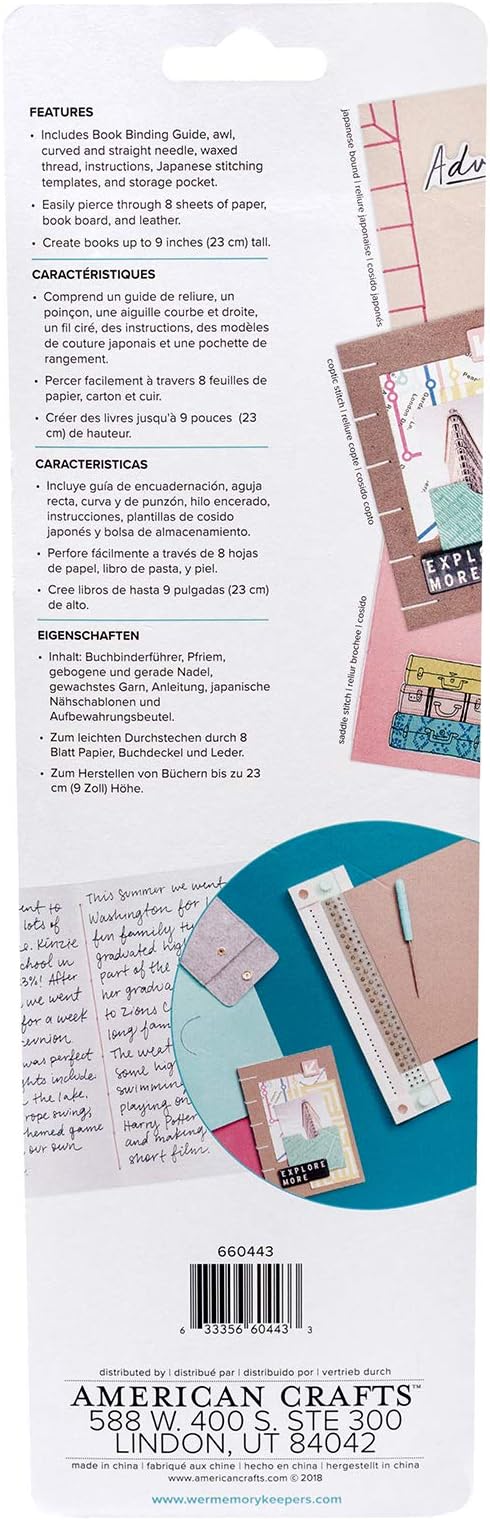 FEATURES
• Includes Book Binding Guide, awl,
curved and straight needle, waxed
thread, instructions, Japanese stitching
templates, and storage pocket.
• Easily pierce through 8 sheets of paper,
book board, and leather.
• Create books up to 9 inches (23 cm) tall.
CARACTÉRISTIQUES
• Comprend un guide de reliure, un
poinçon, une aiguille courbe et droite,
un fil ciré, des instructions, des modèles
de couture japonais et une pochette de
rangement.
• Percer facilement à travers 8 feuilles de
papier, carton et cuir.
• Créer des livres jusqu'à 9 pouces (23
cm) de hauteur.
CARACTERISTICAS
• Incluye guía de encuadernación, aguja
recta, curva y de punzón, hilo encerado,
instrucciones, plantillas de cosido
japonés y bolsa de almacenamiento.
• Perfore fácilmente a través de 8 hojas
de papel, libro de pasta, y piel.
• Cree libros de hasta 9 pulgadas (23 cm)
de alto.
EIGENSCHAFTEN
• Inhalt: Buchbinderführer, Pfriem,
gebogene und gerade Nadel,
gewachstes Garn, Anleitung, japanische
Nähschablonen und
Aufbewahrungsbeutel.
• Zum leichten Durchstechen durch 8
Blatt Papier, Buchdeckel und Leder.
• Zum Herstellen von Büchern bis zu 23
cm (9 Zoll) Höhe.
japanese bound | reliure japonaise | cosido japonés
Adv
coptic stitch | reliure copte | cosido copto
London
EXPLO
MORE
saddle stitch | reliur brochee | cosido
ent to
lots of
e. Kinzie
chool in
3%! After
we went
for a week
eunion
was perfect
ghts include:
the lake,
rope swings,
hemed game
our own
This summer we went
Washington for
fun family
graduated high
part of the
her gradua
to Zions C
long fam
The weat
some hig
swimming
playing on
Harry Potter
and making
short film.
EXPLORE
MORE
660443
6 33356 60443 3
distributed by | distribué par | distribuido por | vertrieb durch
AMERICAN CRAFTS™
588 W. 400 S. STE 300
LINDON, UT 84042
made in china | fabriqué aux chine | hecho en china | hergestellt in china
www.americancrafts.com © 2018
www.wermemorykeepers.com